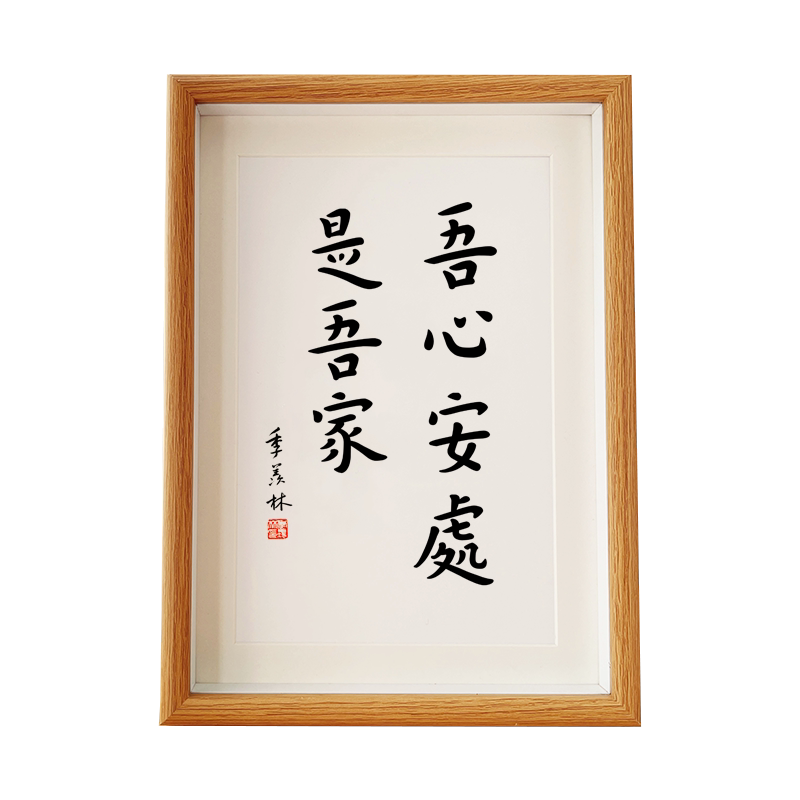 吾心安處
是吾家
季羨林